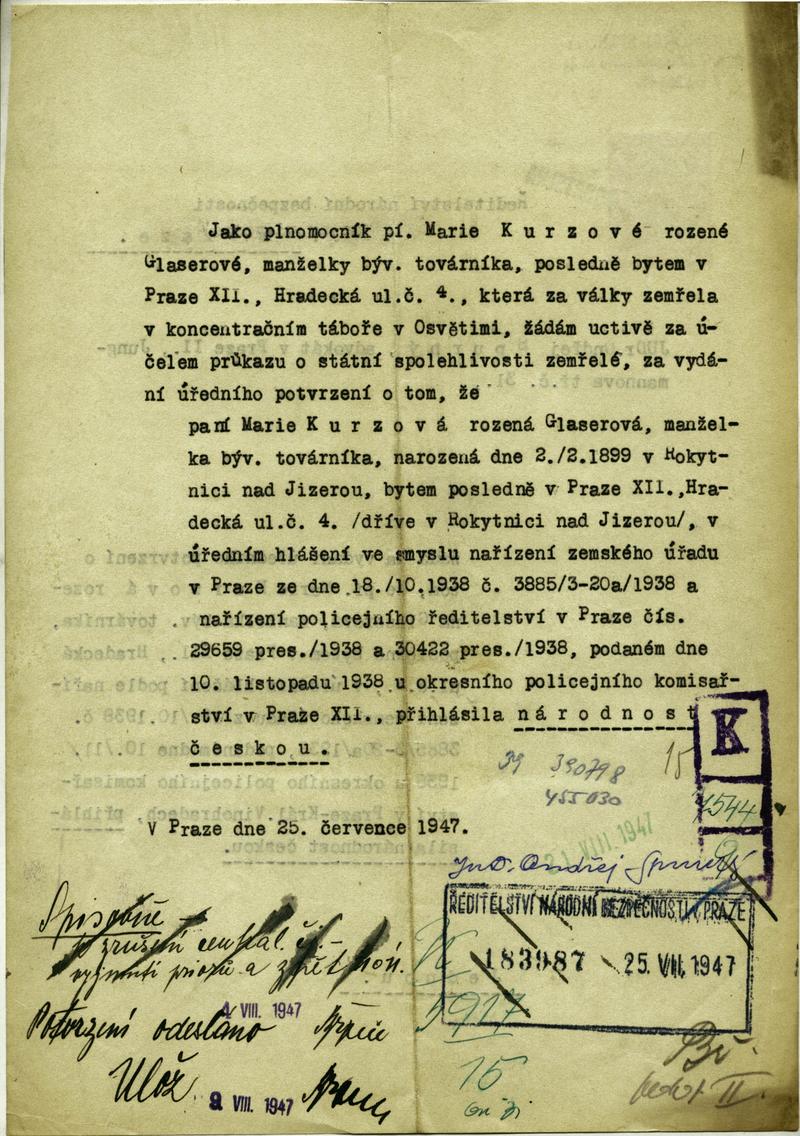 Jako plnomocník pí. Marie K u r z o v é rozené
Glaserové, manželky býv. továrníka, posledně bytem v
Praze XII., Hradecká ul.č. 4., která za války zemřela
v koncentračním táboře v Osvětimi, žádám uctivě za ú-
čelem průkazu o státní spolehlivosti zemřelé, za vydá-
ní úředního potvrzení o tom, že
paní Marie K u r z o v á rozená Glaserová, manžel-
ka býv. továrníka, narozená dne 2./2.1899 v Rokyt-
nici nad Jizerou, bytem posledně v Praze XII.,Hra-
decká ul.č. 4. /dříve v Rokytnici nad Jizerou/, v
úředním hlášení ve smyslu nařízení zemského úřadu
v Praze ze dne 18./10.1938 č. 3885/3-20a/1938 a
nařízení policejního ředitelství v Praze čís.
29659 pres./1938 a 30422 pres./1938, podaném dne
10. listopadu 1938 u okresního policejního komisař-
ství v Praze XII., přihlásila n á r o d n o s t
č e s k o u .
K
39 390798 15
455030
1544
V Praze dne 25. července 1947.
VIII 1947
JuD. Ondřej
ŘEDITELSTVÍ NÁRODNÍ BEZPEČNOSTI V PRAZE
183987 25. VII. 1947
a
4 VIII. 1947
Potvrzení odesláno
5917
15
Ulož
9 VIII. 1947
II.